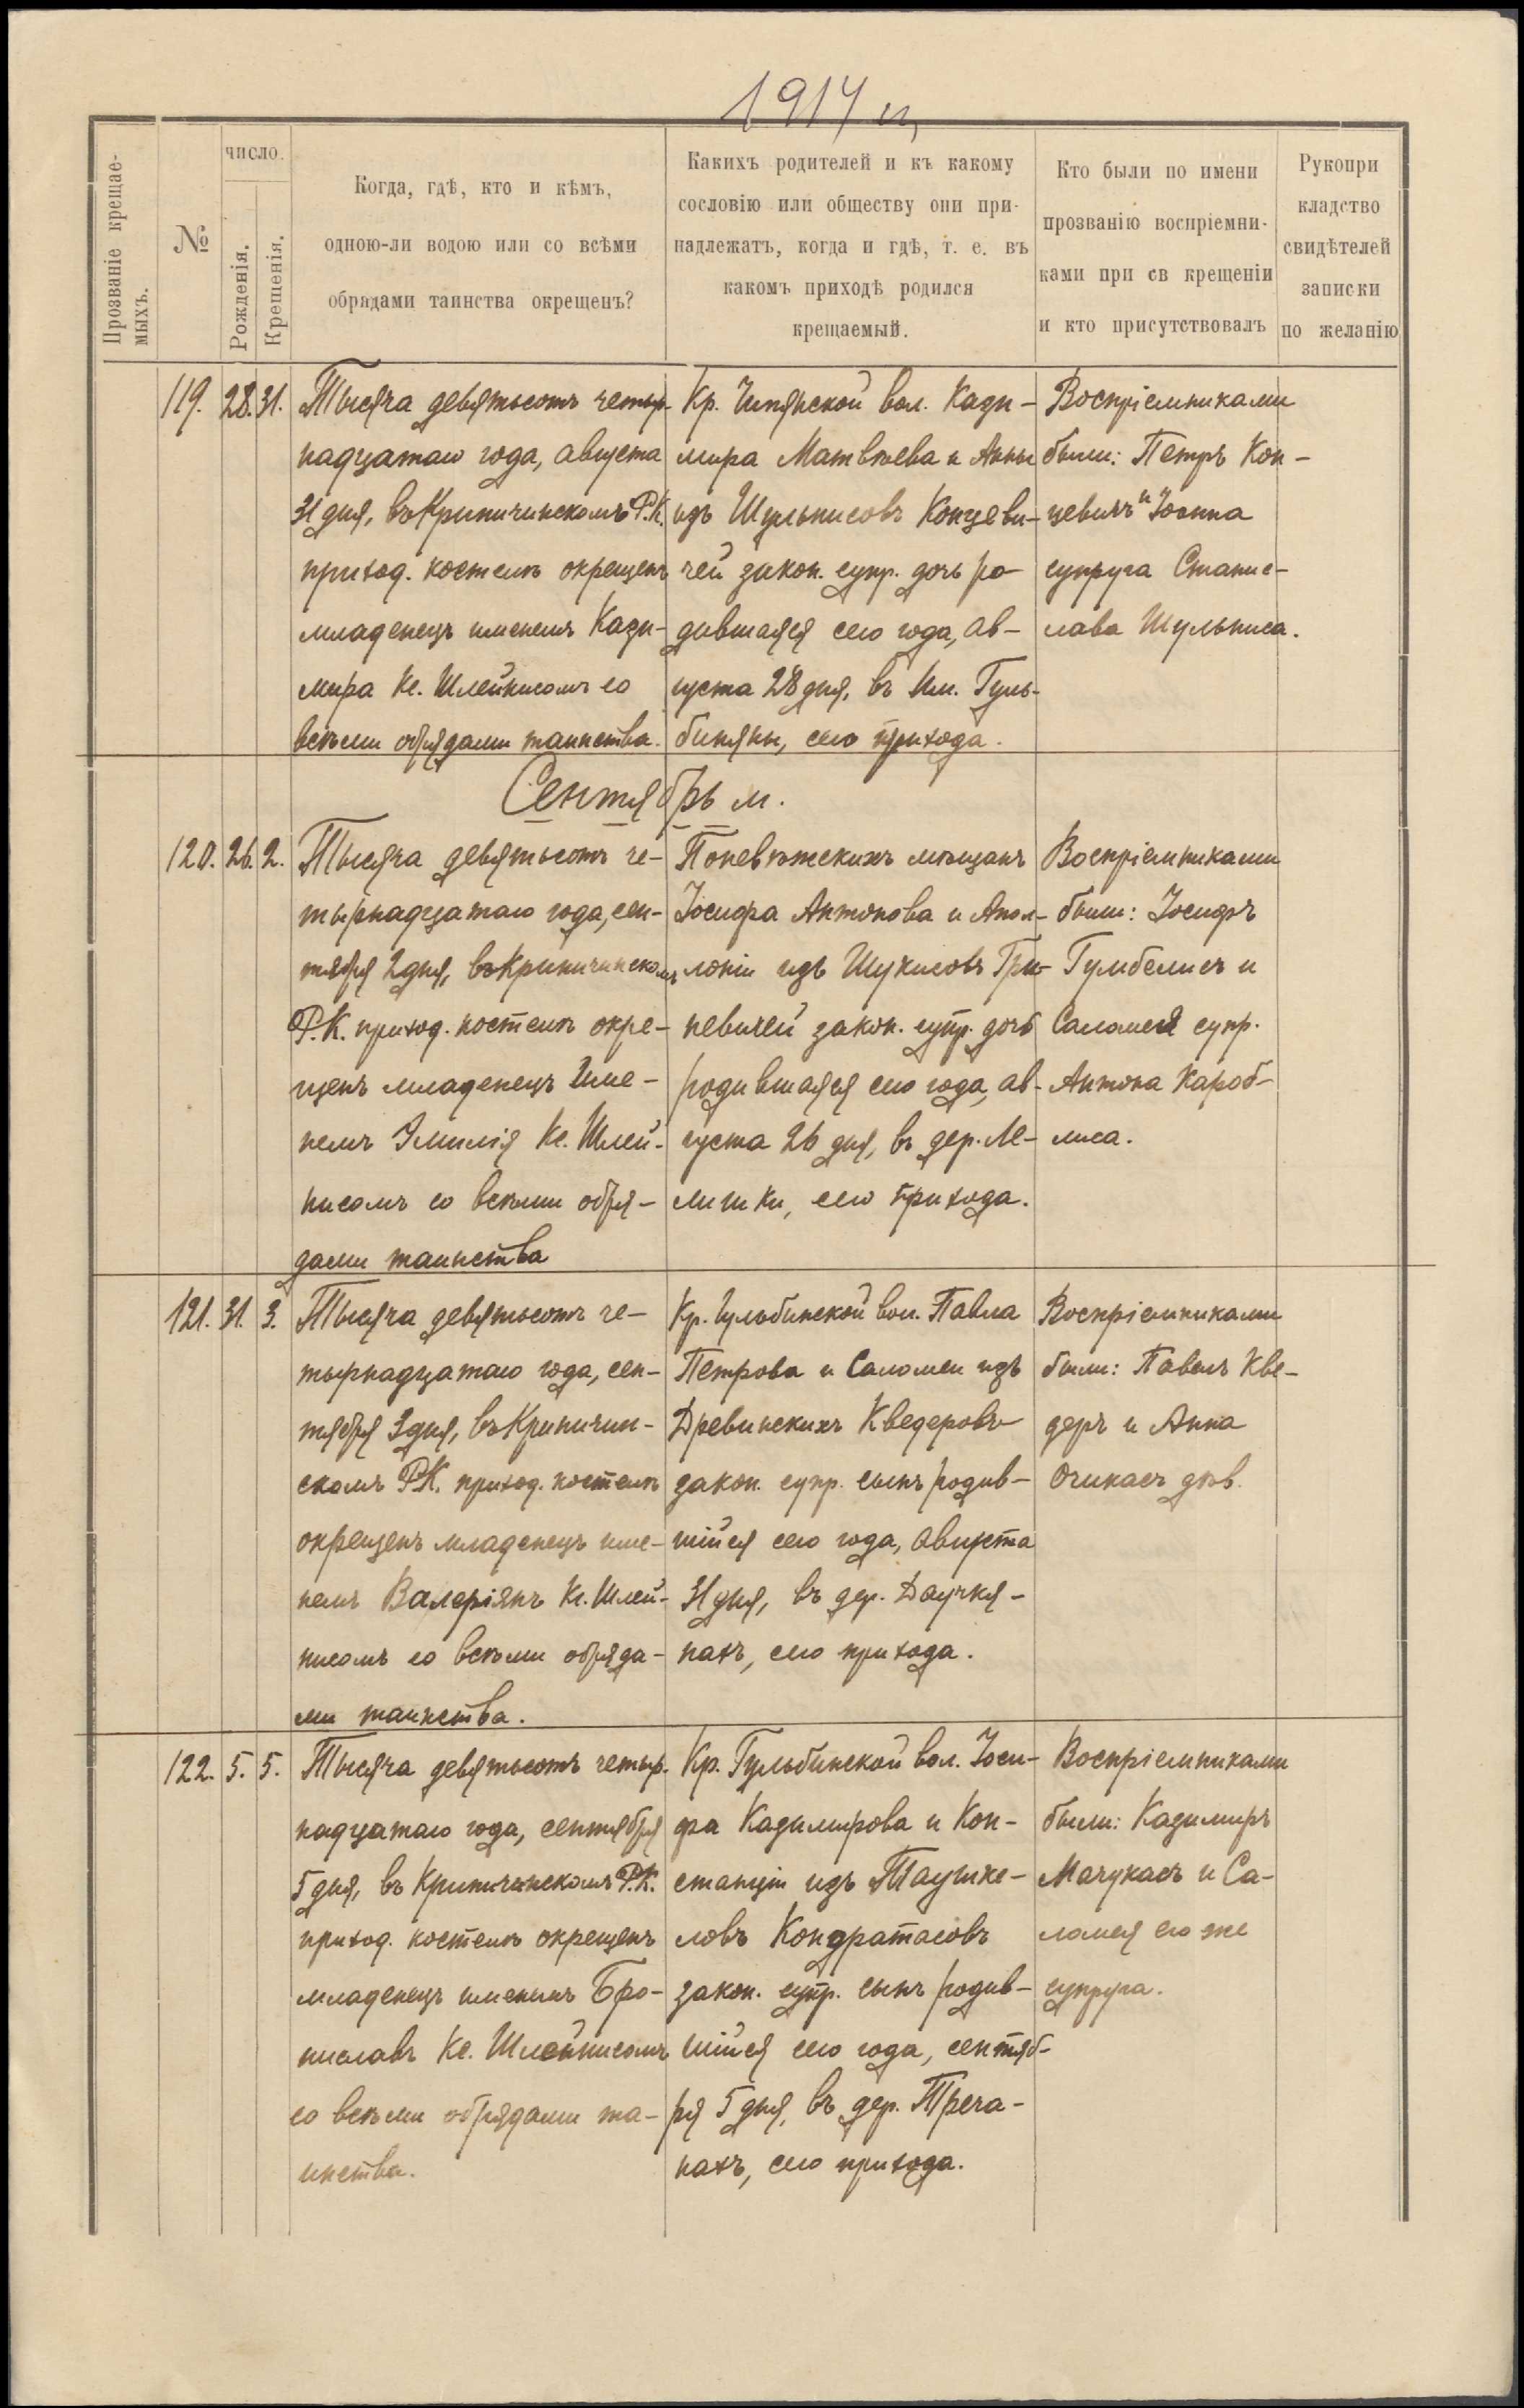 1914 г.
Прозваніе крещае-
мыхъ.
№
число.
Рожденія.
Крещенія.
Когда, гдѣ, кто и кѣмъ,
одною-ли водою или со всѣми
обрядами таинства окрещенъ?
Какихъ родителей и къ какому
сословію или обществу они при-
надлежатъ, когда и гдѣ, т. е. въ
какомъ приходѣ родился
крещаемый.
Кто были по имени
прозванію воспріемни-
ками при св крещеніи
и кто присутствовалъ
Рукопри
кладство
свидѣтелей
записки
по желанію
119. 28. 31.
Тысяча девятьсотъ четыр-
надцатаго года, августа
31 дня, въ Криничинскомъ Р.К.
приход. костелѣ окрещенъ
младенецъ именемъ Кази-
мира Кс. Шлейнисомъ со
всѣми обрядами таинства.
Кр. вол. Кази-
мира Матвѣева и Анны
изъ Шульнисовъ Концеви-
чей закон. супр. дочь ро-
дившаяся сего года, ав-
густа 28 дня, въ Им. Гуль-
биняны, сего прихода.
Воспріемниками
были: Петръ Кон-
цевичъ и Іоанна
супруга Станис-
лава Шульниса.
Сентябрь м.
120. 26. 2.
Тысяча девятьсотъ че-
тырнадцатаго года, сен-
тября 2 дня, въ Криничинскомъ
Р.К. приход. костелѣ окре-
щенъ младенецъ име-
немъ Эмилія Кс. Шлей-
нисомъ со всѣми обря-
дами таинства
Поневѣжскихъ мѣщанъ
Іосифа Антонова и Апол-
лоніи изъ Шукисовъ Гри-
невичей закон. супр. дочь
родившаяся сего года, ав-
густа 26 дня, въ дер. Ме-
лишки, сего прихода.
Воспріемниками
были: Іосифъ
Гумбелисъ и
Саломея супр.
Антона Кароб-
лиса.
121. 31. 3.
Тысяча девятьсотъ че-
тырнадцатаго года, сен-
тября 3 дня, въ Криничин-
скомъ Р.К. приход. костелѣ
окрещенъ младенецъ име-
немъ Валеріянъ Кс. Шлей-
нисомъ со всѣми обряда-
ми таинства.
Кр. Гульбинской вол. Павла
Петрова и Саломеи изъ
Древинскихъ Кведеровъ
закон. супр. сынъ родив-
шійся сего года, августа
31 дня, въ дер. Даучкя-
нахъ, сего прихода.
Воспріемниками
были: Павелъ Кве-
деръ и Анна
Очикасъ дѣв.
122. 5. 5.
Тысяча девятьсотъ четыр-
надцатаго года, сентября
5 дня, въ Криничинскомъ Р.К.
приход. костелѣ окрещенъ
младенецъ именемъ Бро-
ниславъ Кс. Шлейнисомъ
со всѣми обрядами та-
инства.
Кр. Гульбинской вол. Іоси-
фа Казимирова и Кон-
станціи изъ Таушке-
ловъ Кондратасовъ
закон. супр. сынъ родив-
шійся сего года, сентяб-
ря 5 дня, въ дер. Треча-
нахъ, сего прихода.
Воспріемниками
были: Казимиръ
Мачукасъ и Са-
ломея его же
супруга.